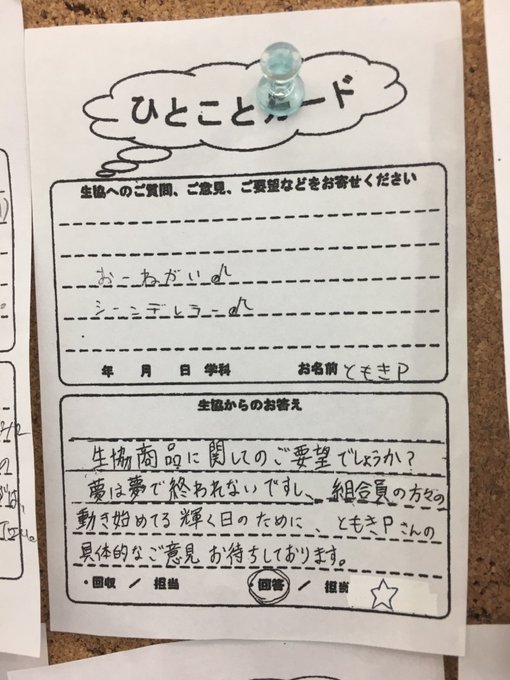 ひとことカード
生協へのご質問、ご意見、ご要望などをお寄せください
おーねがい♪
シーンデレラー♪
年 月 日 学科 お名前 ともきP
生協からのお答え
生協商品に関してのご要望でしょうか？
夢は夢で終われないですし、組合員の方々の
動き始めてる輝く日のために、ともきPさんの
具体的なご意見お待ちしております。
・回収 / 担当 回答 / 担当 ☆